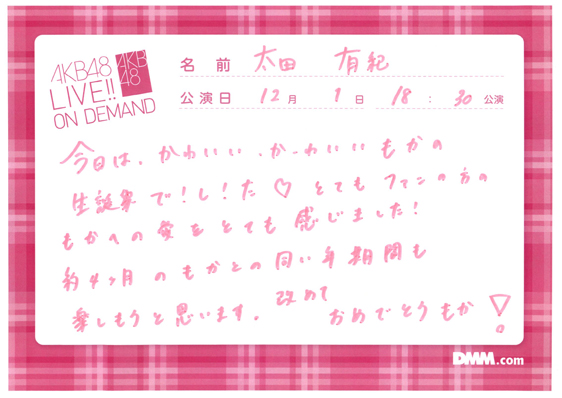 AKB48
LIVE!!
ON DEMAND
AKB
48
名前 太田 有紀
公演日 12月 1日 18:30公演
今日は、かわいい、かっわいいもかの
生誕祭で！し！た♡とてもファンの方の
もかへの愛をとても感じました！
約4ヶ月のもかとの同い年期間も
楽しもうと思います。改めて
おめでとうもか！
DMM.com